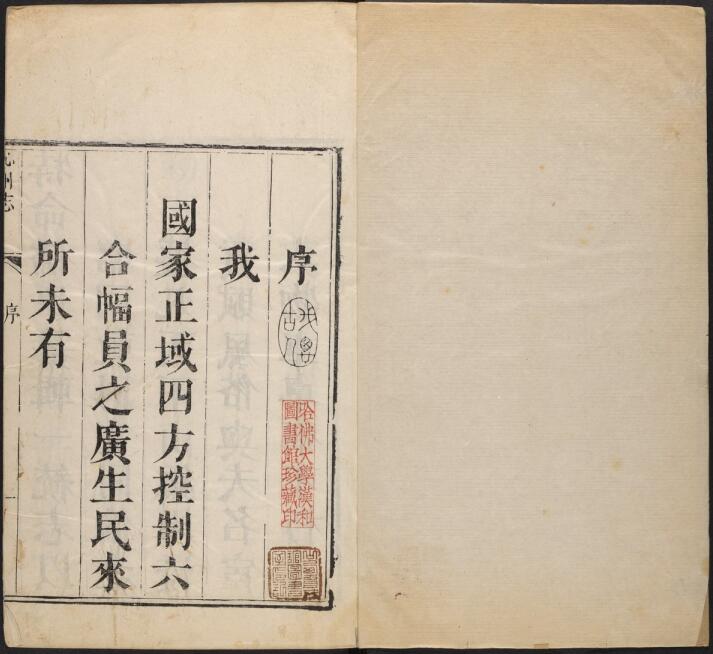 序
我
國家正域四方控制六
合幅員之廣生民來
所未有
州志
序
一
哈佛大學漢和
圖書館珍藏印